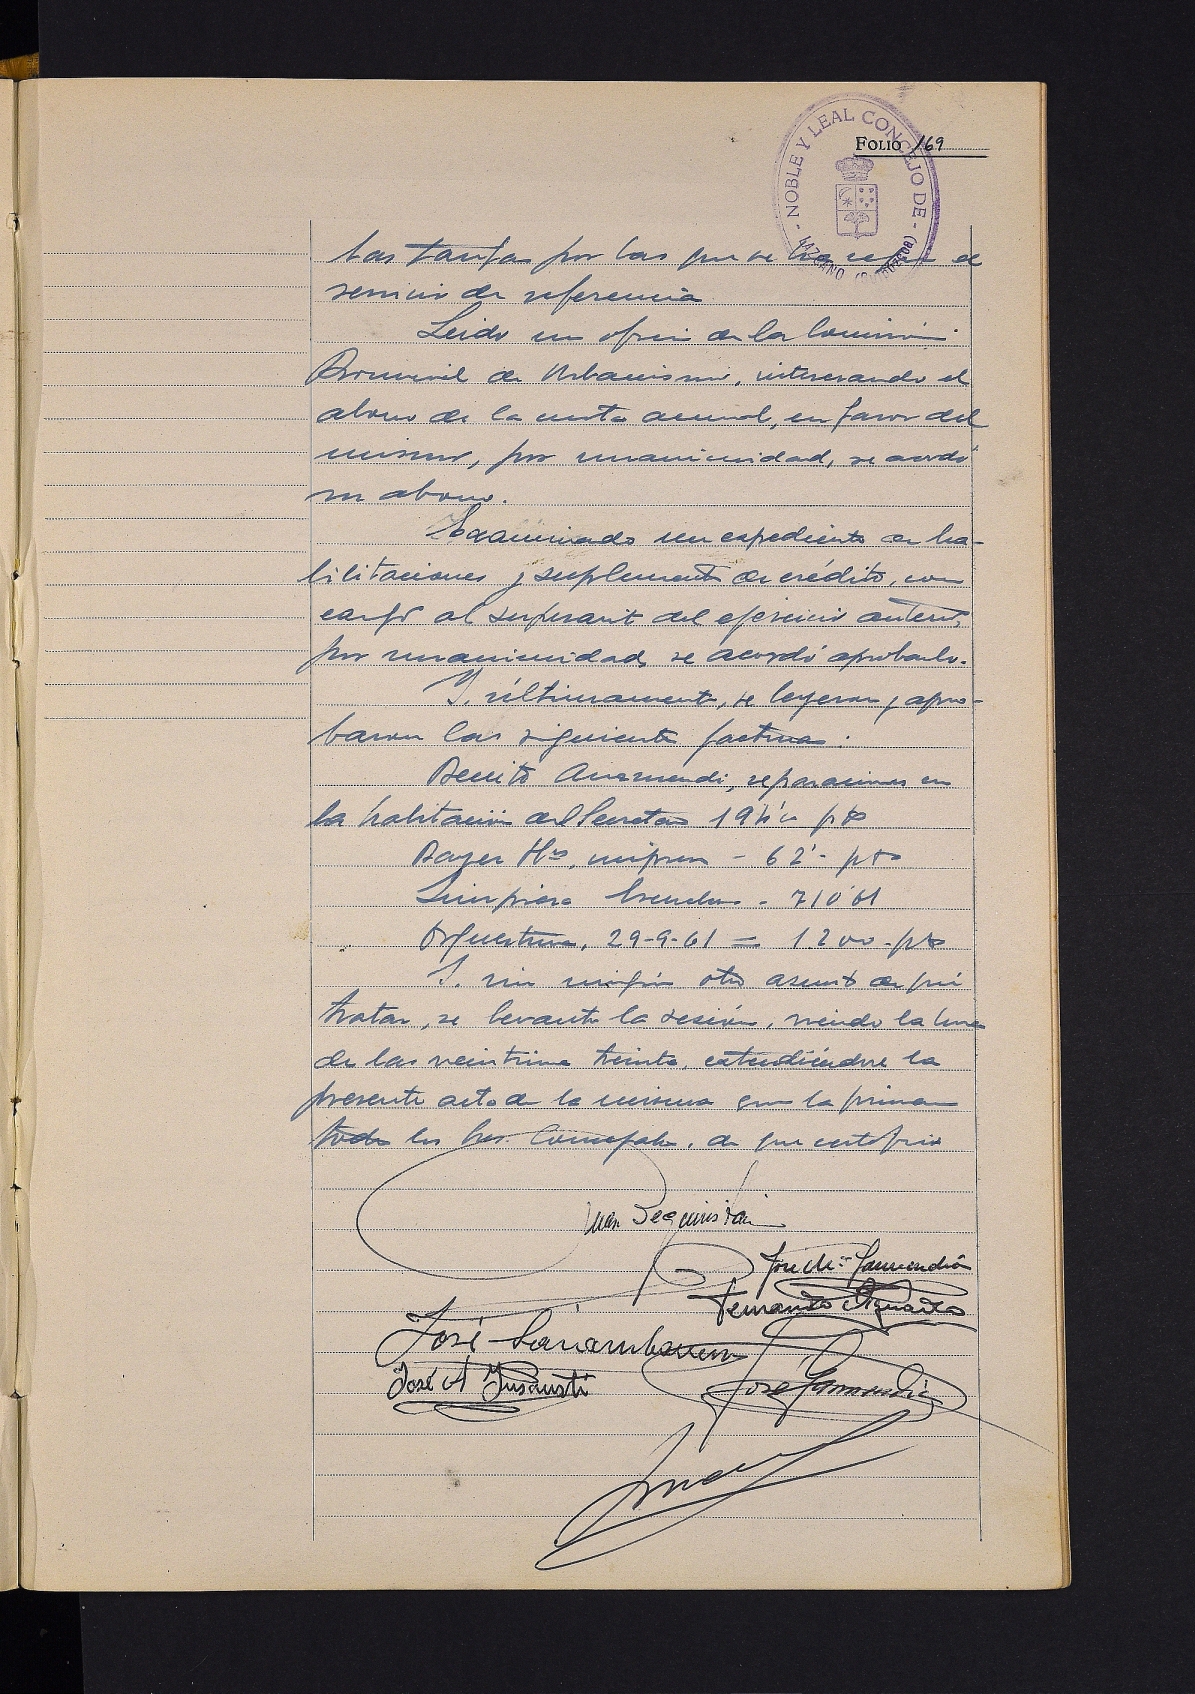 NOBLE Y LEAL CONCEJO DE
LAZCANO (GUIPUZCOA)
FOLIO 169
las tarifas por las que se ha de el
servicio de referencia
Leido un oficio de la Comisión
Provincial de Urbanismo, interesando el
abono de la cuota anual, en favor del
mismo, por unanimidad, se acordó
su abono.
Examinado un expediente de ha-
bilitaciones y suplemento de crédito, con
cargo al superavit del ejercicio anterior,
por unanimidad, se acordó aprobarlo.
Y, últimamente, se leyeron y apro-
baron las siguientes facturas:
Benito reparaciones en
la habitación del Secretario pts
Hos, - 62'- pts
Limpieza - 710'61
29-9-61 = 1.200 - pts
Y, sin ningún otro asunto de que
tratar, se levantó la sesión, siendo la hora
de las veintiuna treinta, extendiéndose la
presente acta de la misma que la firman
todos los Sres. Concejales, de que certifico
Juan Seguristain
José Mª Garmendia
Fernando
José
José A Insausti
José Garmendia